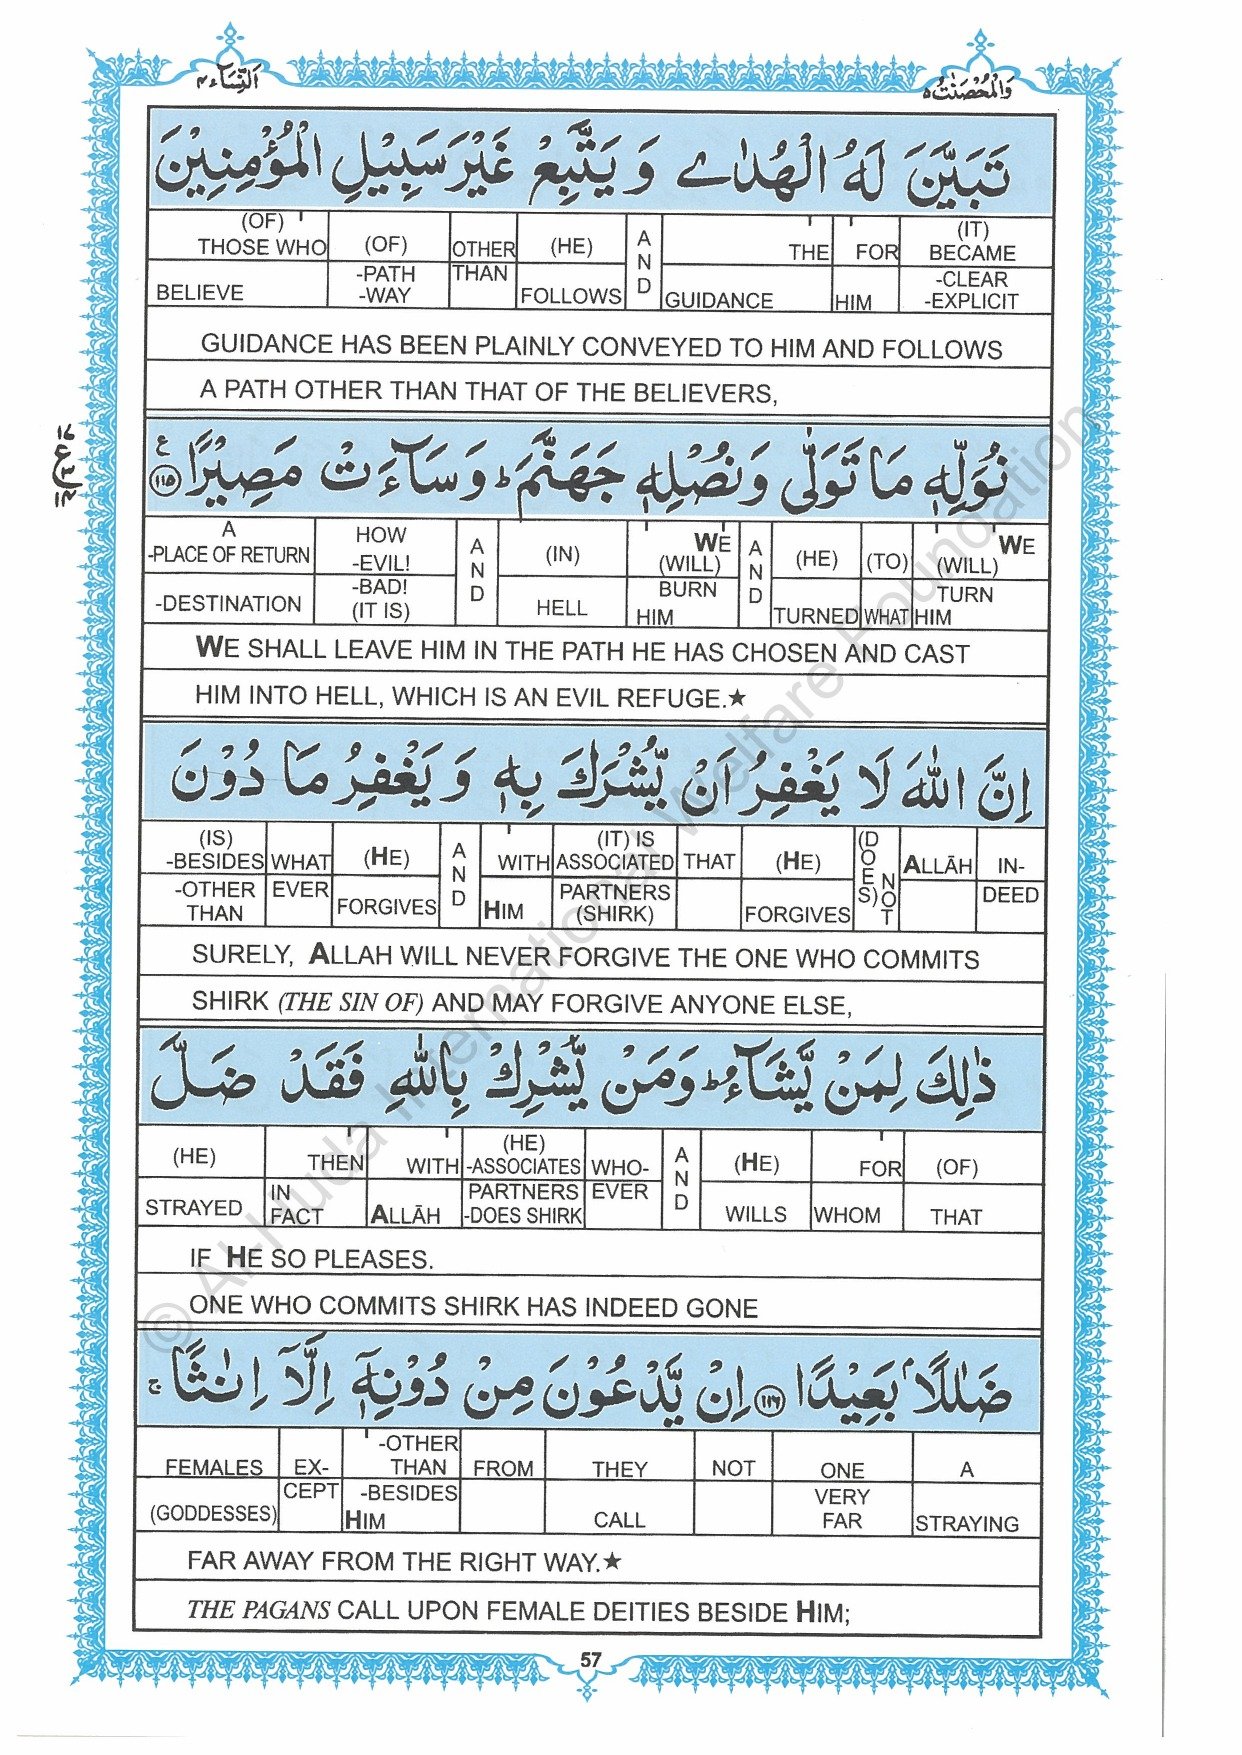 اَلنِّسَآء ٤
وَالْمُحْصَنٰتُ ٥
تَبَيَّنَ لَهُ الْهُدٰى وَ يَتَّبِعْ غَيْرَ سَبِيْلِ الْمُؤْمِنِيْنَ
(OF) (HE) A (IT)
THOSE WHO (OF) OTHER N THE FOR BECAME
BELIEVE -PATH THAN FOLLOWS D GUIDANCE HIM -CLEAR
-WAY -EXPLICIT
GUIDANCE HAS BEEN PLAINLY CONVEYED TO HIM AND FOLLOWS
A PATH OTHER THAN THAT OF THE BELIEVERS,
نُوَلِّهٖ مَا تَوَلّٰى وَ نُصْلِهٖ جَهَنَّمَ ؕ وَ سَآءَتْ مَصِيْرًا ﴿١١٥﴾ ع
١٧
ع
١٤
A HOW A WE A WE
-PLACE OF RETURN -EVIL! N (IN) (WILL) N (HE) (TO) (WILL)
-DESTINATION -BAD! D HELL BURN D TURNED WHAT TURN
(IT IS) HIM HIM
WE SHALL LEAVE HIM IN THE PATH HE HAS CHOSEN AND CAST
HIM INTO HELL, WHICH IS AN EVIL REFUGE.★
اِنَّ اللّٰهَ لَا يَغْفِرُ اَنْ يُّشْرَكَ بِهٖ وَ يَغْفِرُ مَا دُوْنَ
(IS) A (IT) IS (DOES)
-BESIDES WHAT (HE) N WITH ASSOCIATED THAT (HE) NOT ALLĀH IN-
-OTHER EVER FORGIVES D HIM PARTNERS FORGIVES DEED
THAN (SHIRK)
SURELY, ALLAH WILL NEVER FORGIVE THE ONE WHO COMMITS
SHIRK (THE SIN OF) AND MAY FORGIVE ANYONE ELSE,
ذٰلِكَ لِمَنْ يَّشَآءُ ؕ وَ مَنْ يُّشْرِكْ بِاللّٰهِ فَقَدْ ضَلَّ
(HE) (HE) A (HE)
THEN WITH -ASSOCIATES WHO- N FOR (OF)
STRAYED IN ALLĀH PARTNERS EVER D WILLS WHOM THAT
FACT -DOES SHIRK
IF HE SO PLEASES.
ONE WHO COMMITS SHIRK HAS INDEED GONE
ضَلٰلًاۢ بَعِيْدًا ﴿١١٦﴾ اِنْ يَّدْعُوْنَ مِنْ دُوْنِهٖۤ اِلَّاۤ اِنٰثًا ۚ
-OTHER
FEMALES EX- THAN FROM THEY NOT ONE A
(GODDESSES) CEPT -BESIDES CALL VERY STRAYING
HIM FAR
FAR AWAY FROM THE RIGHT WAY.★
THE PAGANS CALL UPON FEMALE DEITIES BESIDE HIM;
57
© Al-Huda International Welfare Foundation